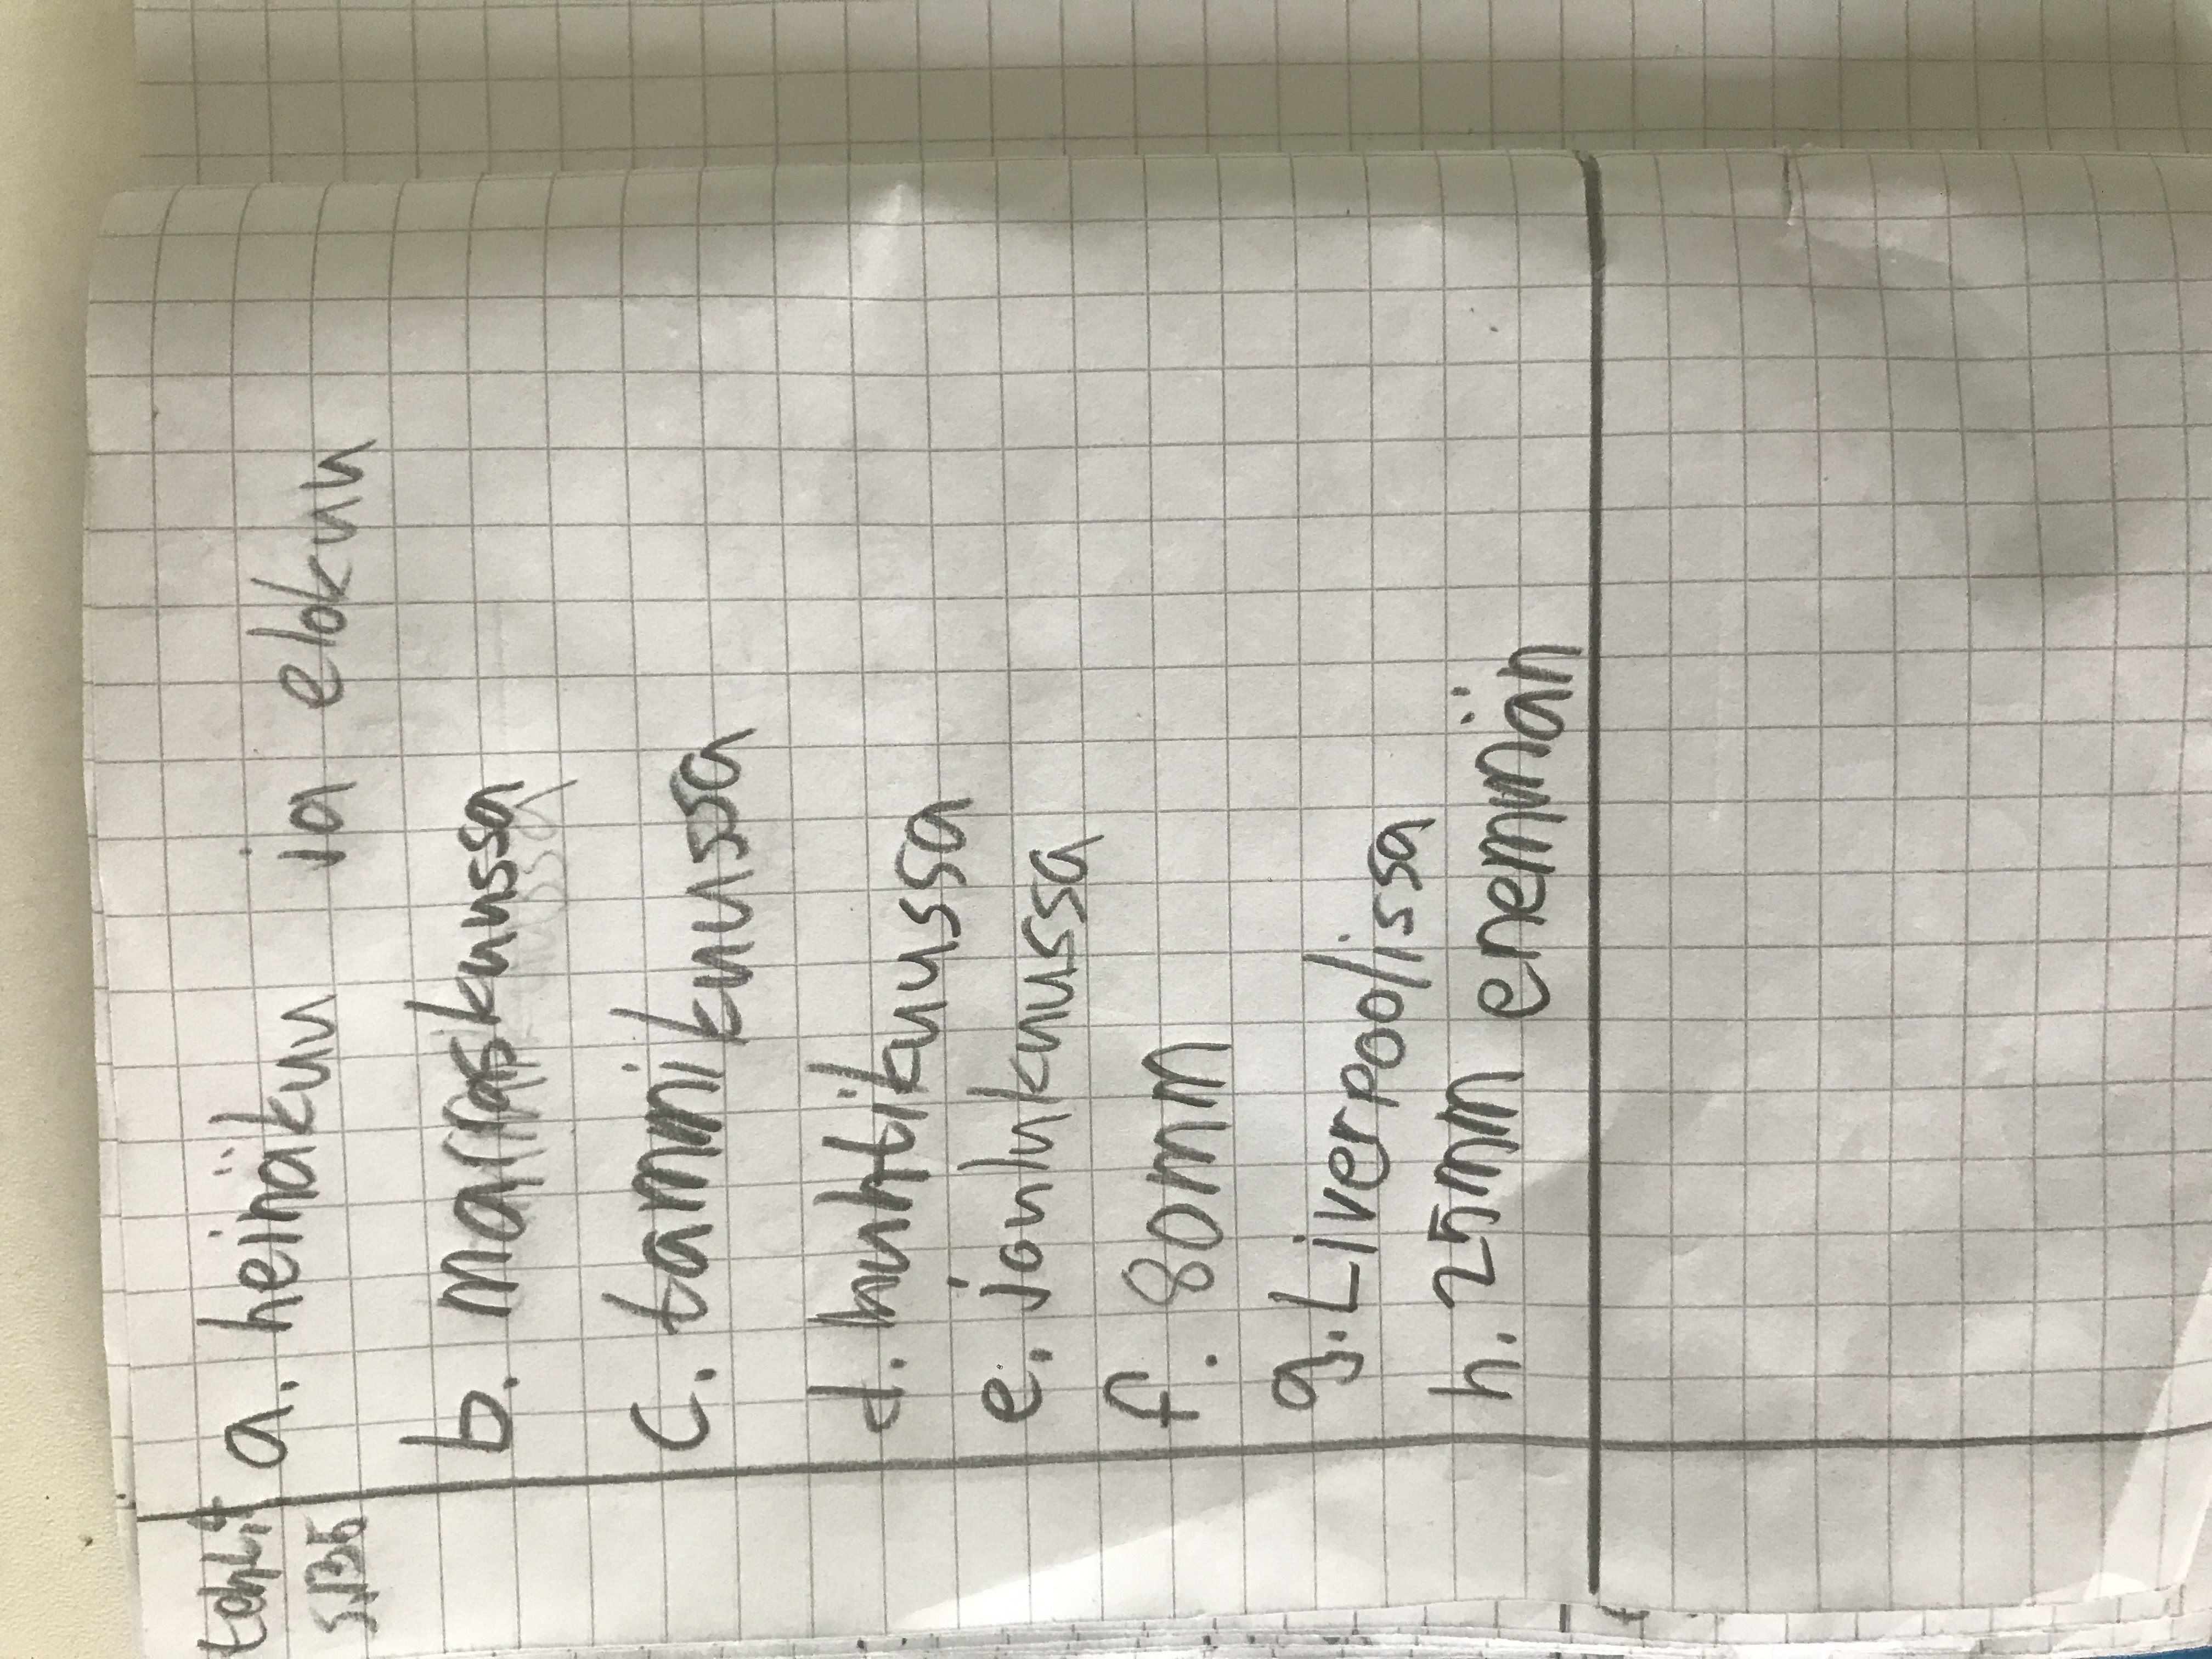 a. heinäkuu ja elokuu
s.135
b. marraskuussa
c. tammikuussa
d. huhtikuussa
e. joulukuussa
f. 80mm
g. Liverpoolissa
h. 25mm enemmän